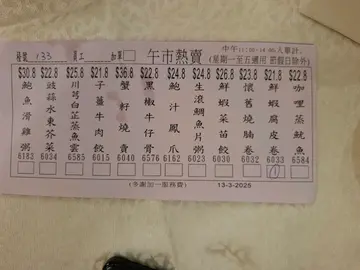 檯號 133 員工 加單 午市熱賣 市午11:30-14:00入單計.
(星期一至五適用 節假日除外)
$30.8 鮑魚滑雞粥 6183
$22.8 豉蒜水東芥菜 6034
$25.8 川芎白芷蒸魚雲 6585
$21.8 子薑牛肉餃 6015
$36.8 蟹籽燒賣 6040
$22.8 黑椒牛仔骨 6576
$24.8 鮑汁鳳爪 6162
$24.8 生滾鯛魚片粥 6523
$26.8 鮮蝦菜苗餃 6030
$23.8 懷舊燒腩卷 6032
$21.8 鮮蝦腐皮卷 6033
$22.8 咖哩蒸魷魚 6584
(多謝加一服務費)
13-3-2025